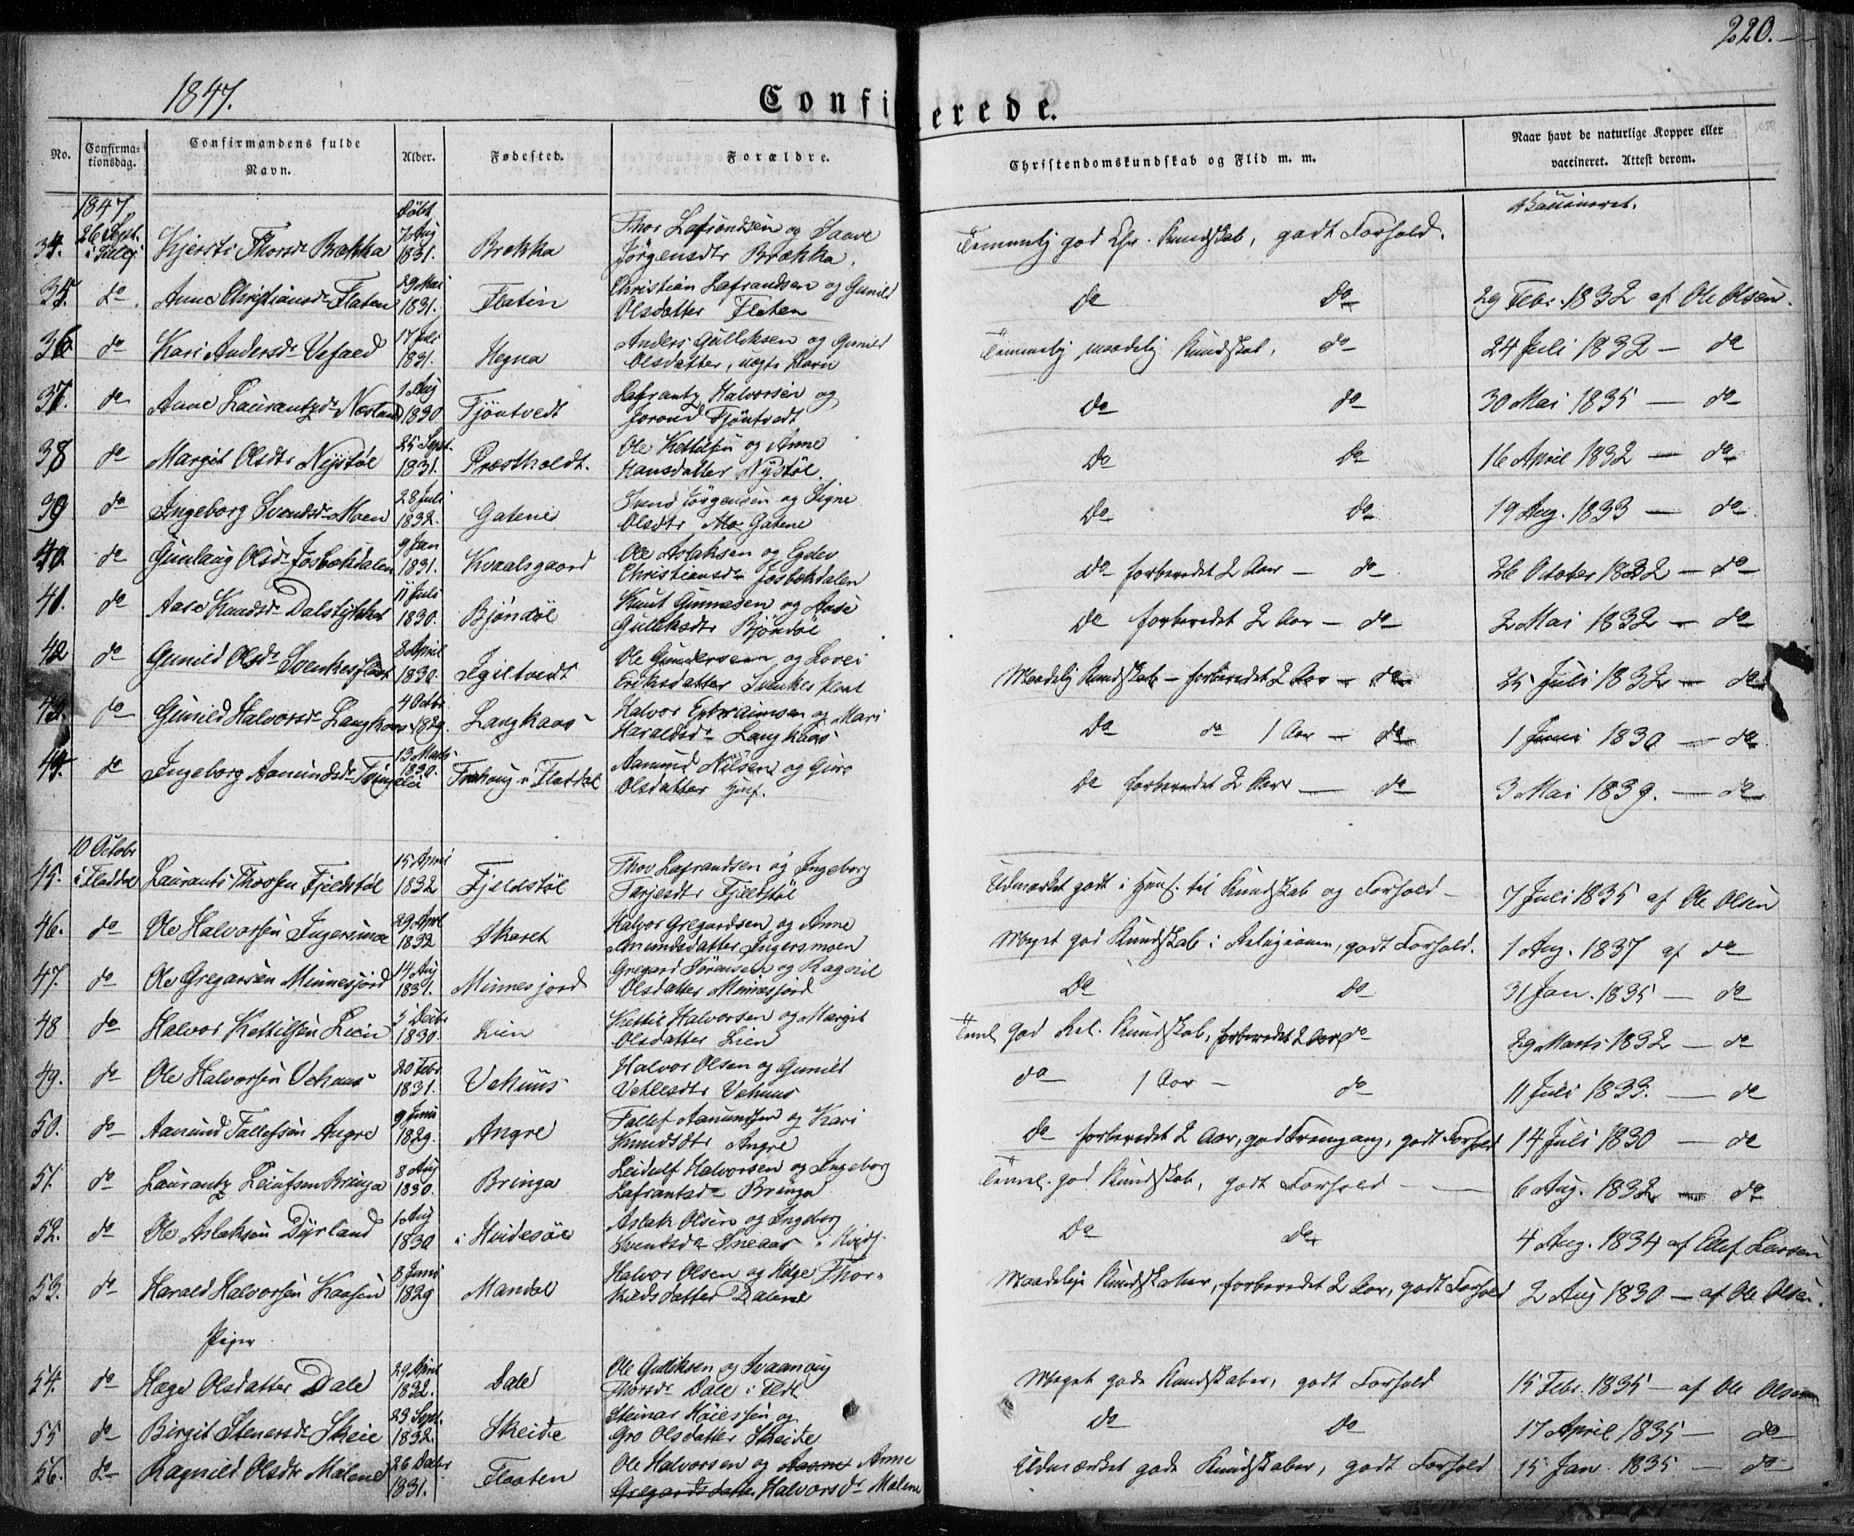 220.
1847.
Confirmerede.
No. Confirmationsdag. Confirmandens fulde Navn. Alder. Fødested. Forældre. Christendomskundskab og Flid m. m. Naar havt de naturlige Kopper eller vaccineret. Attest derom.
1847 døbt Vaccineret.
34. 26 Sept. i Sillej Kjersti Thorsdr Brækka 7 Aug 1831. Brekka Thor Lafrandsen og Saave Jörgensdtr Brækka. Temmelig god Chr. Kundskab, godt Forhold.
35. do Anne Christiansdr Flaten 29 Mai 1831. Flatin Christian Lafrandsen og Gunild Olsdatter Flaten do do 29 Febr. 1832 af Ole Olsen.
36 do Kari Andersdr Vefald 17 Juli 1831. Hegna Anders Gulliksen og Gunild Olsdatter, uægte Barn Temmelig maadelig Kundskab, do 24 Juli 1832 — do
37. do Anne Laurantzdr Næsland 1 Aug 1830 Tjöntvedt Lafrantz Halvorsen og Jorond Tjöntvedt do do 30 Mai 1835 — do
38 do Margit Olsdtr Nystöl 25 Sept. 1831. Præstholdt. Ole Kettilsen og Anne Hansdatter Nystöl. do do 16 April 1832 — do
39 do Ingeborg Svendsdr Moen 28 Juli 1832. Gatene Svend Jörgensen og Signe Olsdtr Mo Gatene do do 19 Aug. 1833 — do
40. do Gunlaug Olsdr Josbækdalen 9 Jan 1831. Kvaalsgaard Ole Aslaksen og Egelev Christiansdr Josbækdalen do forberedet 2 Aar — do 26 October 1832 — do
41. do Aase Knudsdr Dalstykket 11 Juli 1830. Bjöndöl Knut Gunnesen og Aase Gulleksdtr Bjöndöl do forberedet 2 Aar — do 2 Mai 1832 — do
42 do Gunild Olsdr Svenkesplaat 3 April 1830. Igiltvedt Ole Gundersen og Lovei Eriksdatter Svenkesplaat Maadelig Kundskab — forberedet 2 Aar — do 25 Juli 1832 — do
43. do Gunild Halvorsdr Langkaas 4 Octbr. 1829. Langkaas Halvor Ephraimsen og Mari Haraldsdr Langkaas do do 1 Aar — do 1 Juni 1830 — do
44. do Ingeborg Aamundsdr 13 Marts 1830. i Flatdal Aamund Nilsen og Guro Olsdatter do forberedet 2 Aar — do 3 Mai 1839. — do
10 Octobr
45. i Fladdal Laurants Thorsen Fjeldstöl 15 April 1832 Fjeldstöl Thor Lafrandsen og Ingeborg Tarjesdtr Fjeldstöl Udmærket godt i Hens. til Kundskab og Forhold — 7 Juli 1835 af Ole Olsen
46. do Ole Halvorsen Ingersmoe 29 Aprl 1832 Skaret Halvor Gregardsen og Anne Amundsdatter Ingersmoen Meget god Kundskab i Religionen, godt Forhold. 1 Aug. 1837 af do
47. do Ole Gregarsen Minnesjord 14 Aug 1831. Minnesjord Gregard Sörensen og Ragnil Olsdatter Minnesjord do do 31 Jan. 1835 — do
48 do Halvor Kettilsen Lien 5 Decbr 1830. Lien Kettil Halvorsen og Margit Olsdatter Lien Teml. god Rel. Kundskab, forberedet 2 Aar do 29 Marts 1832 — do
49. do Ole Halvorsen Vehuus 20 Febr 1831. Vehuus Halvor Olsen og Gunild Vetlesdtr Vehuus do 1 Aar — do 11 Juli 1833. — do
50. do Aamund Tallefsen Angre 9 Juni 1829. Angre Tallef Aamundsen og Kari Angre do forberedet 2 Aar, god Fremgang, godt Forhold 14 Juli 1830 — do
51. do Laurantz Leiufsen Bringa 8 Aug 1830. Bringa Leidulf Halvorsen og Ingeborg Lafrantsdr Bringa Temel. god Kundskab, godt Forhold — 6 Aug. 1832 do
52. do Ole Aslaksen Dyrland 1 Aug 1830 i Hvidesöe Aslak Olsen og Ingeborg Svendsdr do do 4 Aug. 1834 af Ellef Larsen
53. do Harald Halvorsen Kaasin 8 Juni 1829 Mandal Halvor Olsen og Hæge Thorkildsdatter Dalene Maadelige Kundskaber, forberedet 2 Aar, godt Forhold 2 Aug 1830 — af Ole Olsen.
Piger
54. do Hæge Olsdatter Dale 29 April 1832. Dale Ole Gulliksen og Svaanaug Thorsdr Dale i Meget gode Kundskaber, godt Forhold 15 Febr. 1835 — af Ole Olsen
55 do Birgit Stenersdr Skeie 23 Sept. 1832. Skeide Steinar Höiessen og Gro Olsdatter Skeide do do 17 April 1835 — do
56. do Ragnild Olsdtr Malene 26 Decbr 1831. Flaaten Ole Halvorsen og Anne Gregardsdatter Halvorsdr Malene Udmærket gode Kundskaber, godt Forhold 15 Jan. 1835 — do